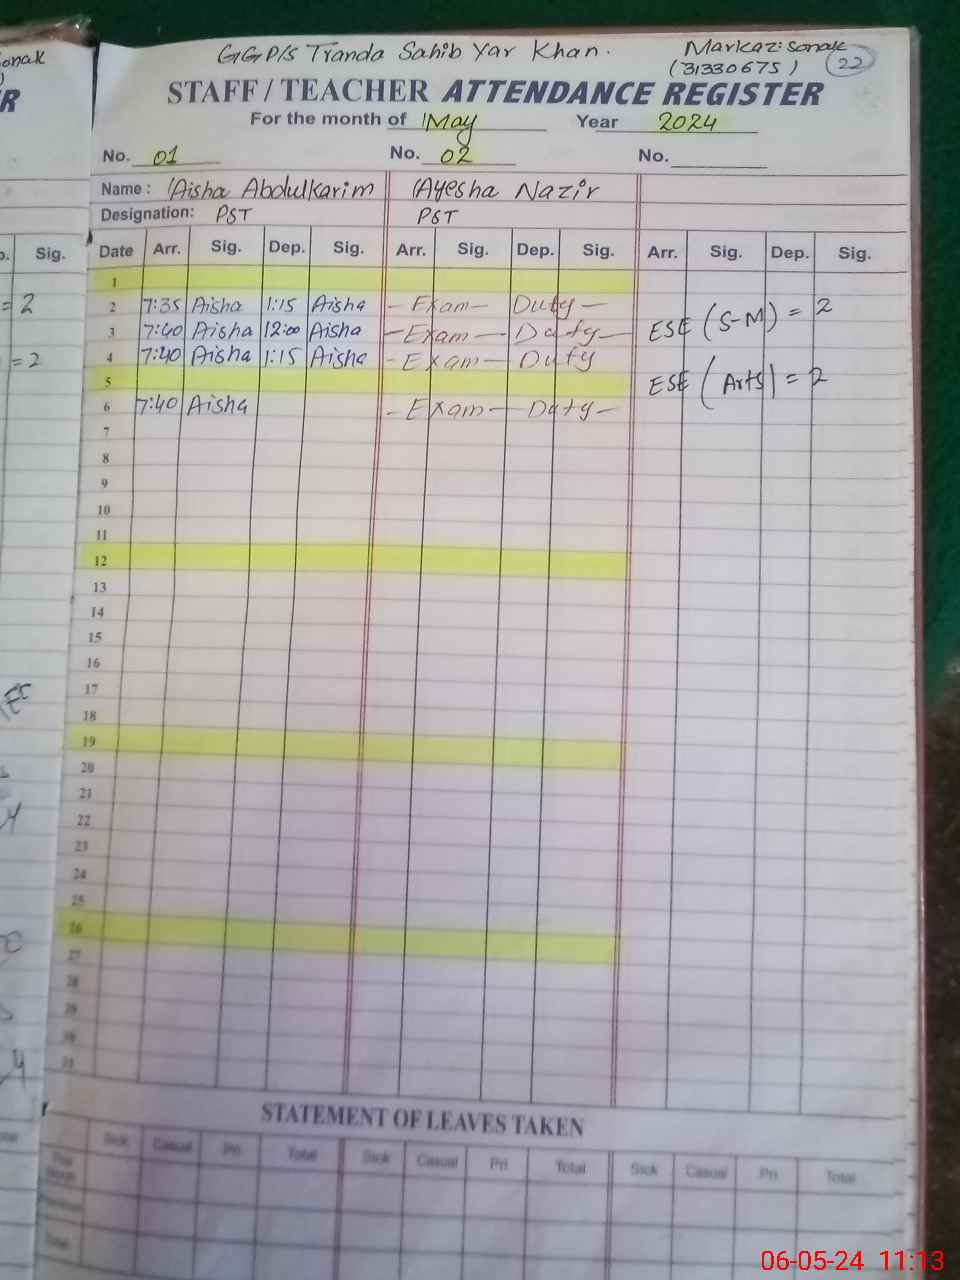 GGP/s Tranda Sahib Yar Khan.
Markaz: Sonak
(31330675) 22
STAFF / TEACHER ATTENDANCE REGISTER
For the month of May Year 2024
No. 01 No. 02 No.
Name : Aisha Abdulkarim Ayesha Nazir
Designation: PST PST
Date Arr. Sig. Dep. Sig. Arr. Sig. Dep. Sig. Arr. Sig. Dep. Sig.
1
2 7:35 Aisha 1:15 Aisha - Exam - Duty -
ESE (S-M) = 2
3 7:40 Aisha 12:00 Aisha - Exam - Duty -
4 7:40 Aisha 1:15 Aisha - Exam - Duty
5
ESE (Arts) = 2
6 7:40 Aisha - Exam - Duty -
7
8
9
10
11
12
13
14
15
16
17
18
19
20
21
22
23
24
25
26
27
28
29
30
31
STATEMENT OF LEAVES TAKEN
Sick Casual Pri Total Sick Casual Pri Total Sick Casual Pri Total
This Month
Total
onak
R
Sig.
= 2
= 2
06-05-24 11:13